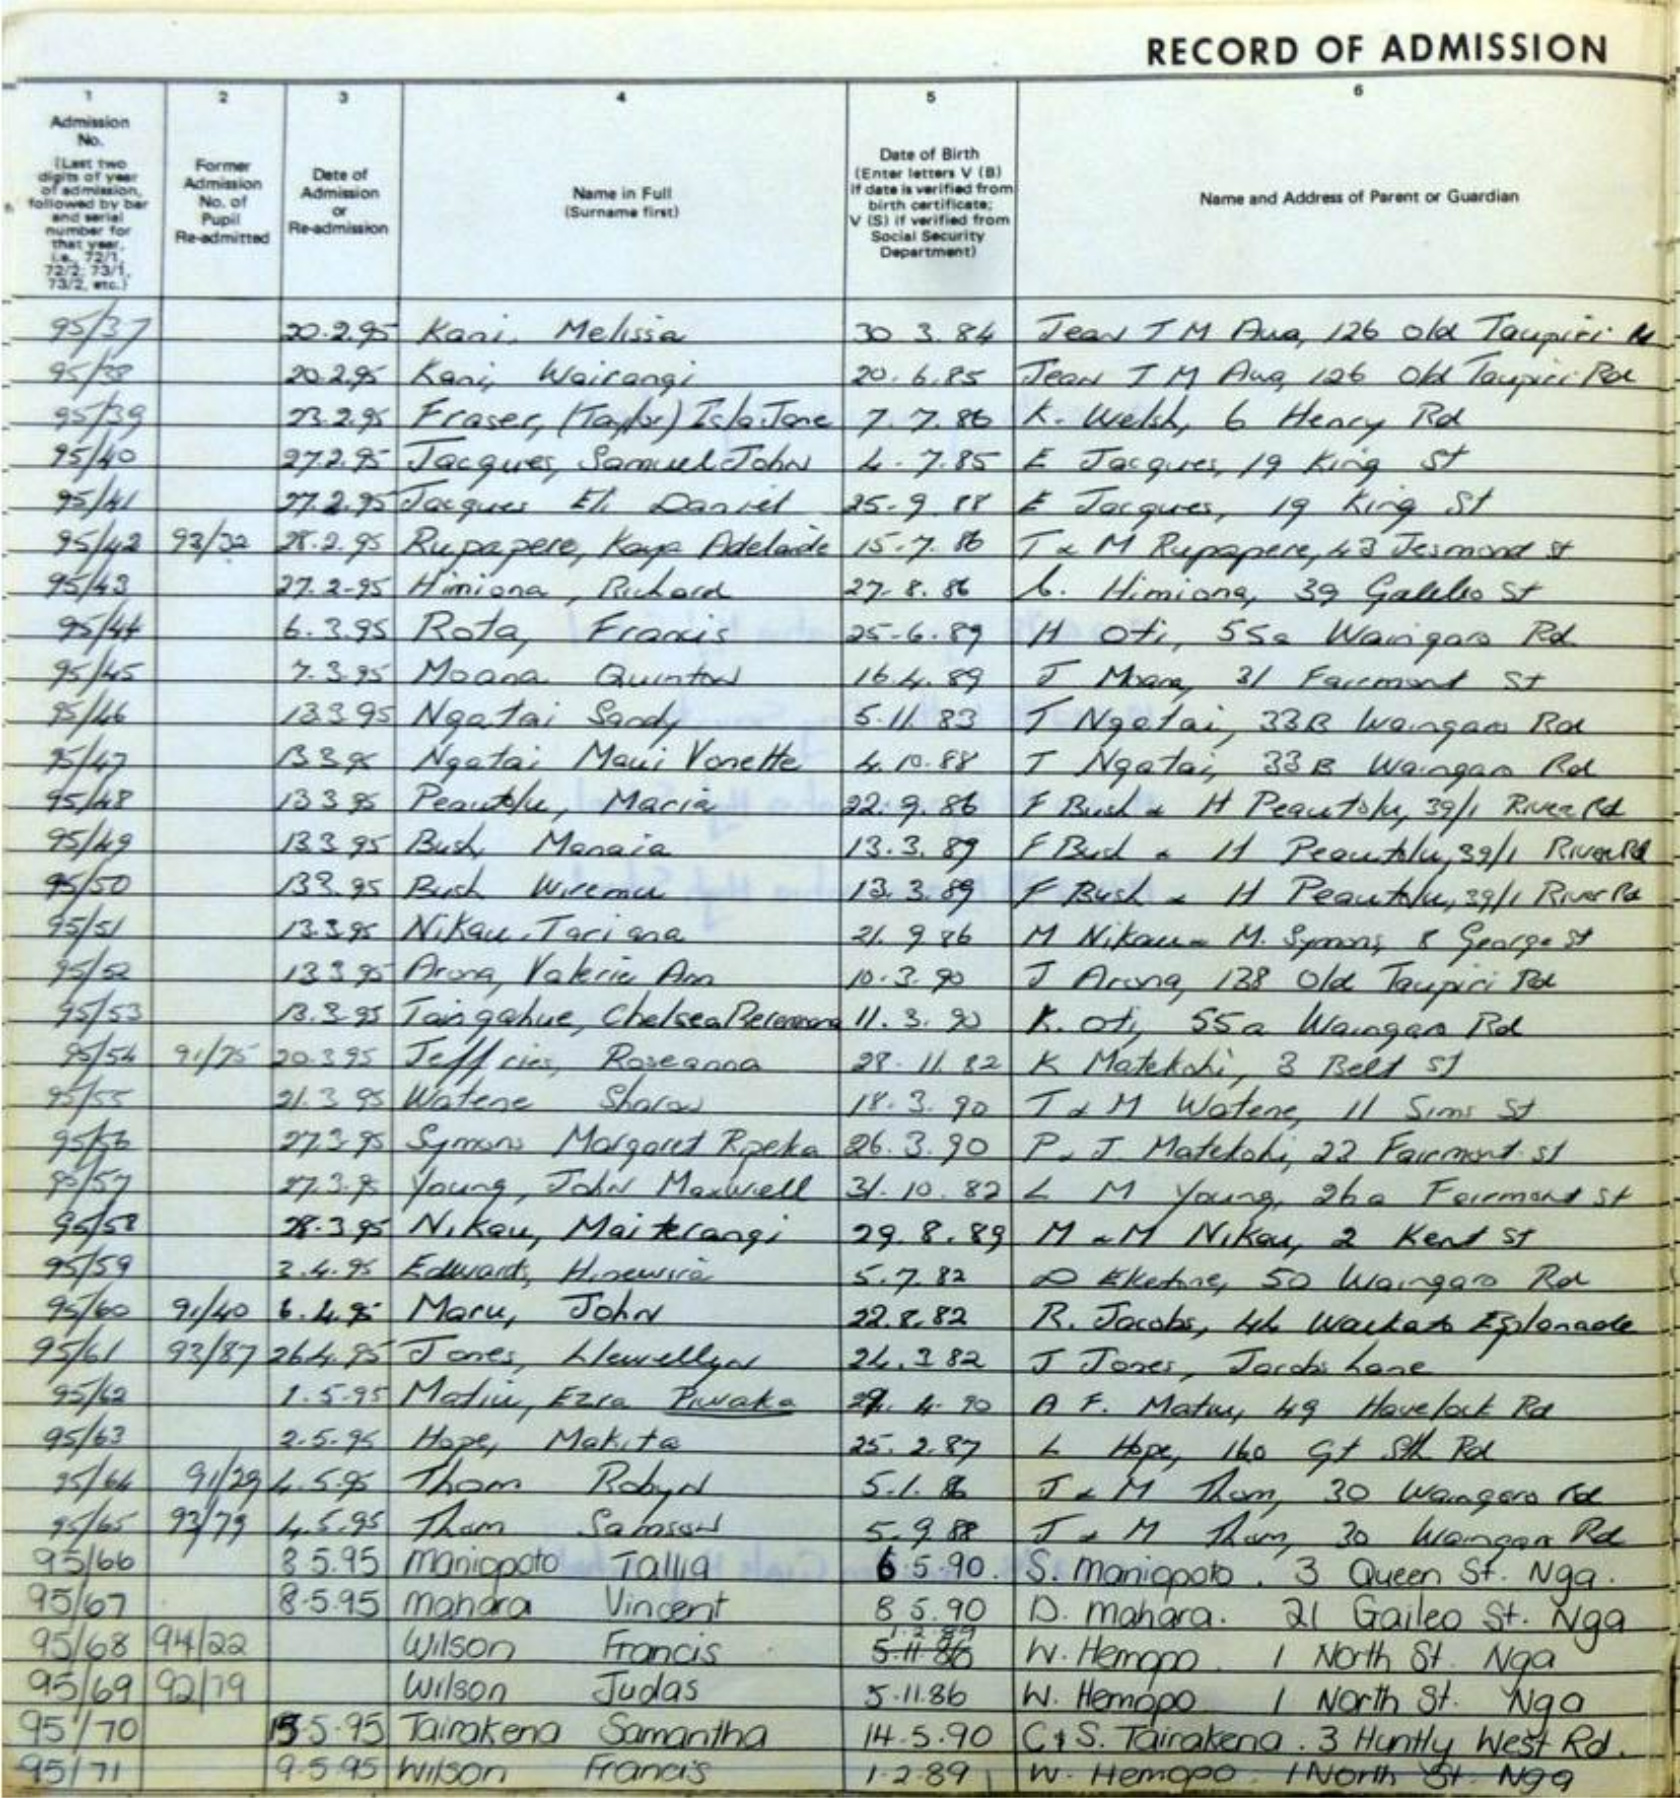 RECORD OF ADMISSION
1 2 3 4 5 6
Admission No. (Last two digits of year of admission, followed by bar and serial number for that year, i.e., 72/1, 72/2; 73/1, 73/2, etc.)
Former Admission No. of Pupil Re-admitted
Date of Admission or Re-admission
Name in Full (Surname first)
Date of Birth (Enter letters V (B) if date is verified from birth certificate; V (S) if verified from Social Security Department)
Name and Address of Parent or Guardian
95/37 20.2.95 Kani, Melissa 30 3.84 Jean T M Aua, 126 Old Taupiri
95/38 20.2.95 Kani, Wairangi 20.6.85 Jean T M Aua, 126 Old Taupiri Rd
95/39 23.2.95 Fraser, (Taylor) Isla Jane 7.7.86 K. Welsh, 6 Henry Rd
95/40 27.2.95 Jacques, Samuel John 4.7.85 E Jacques, 19 King St
95/41 27.2.95 Jacques Eli Daniel 25.9.88 E Jacques, 19 King St
95/42 93/32 28.2.95 Rupapere, Kaya Adelaide 15.7.86 T & M Rupapere, 43 Jesmond St
95/43 27.2.95 Himiona, Richard 27.8.86 Himiona, 39 Galileo St
95/44 6.3.95 Rota, Francis 25.6.89 H Oti, 55a Waingaro Rd
95/45 7.3.95 Moana Quinton 16.4.89 J Moana, 31 Fairmont St
95/46 13.3.95 Ngatai Sandy 5.11.83 T Ngatai, 33B Waingaro Rd
95/47 13.3.95 Ngatai Maui Vonette 4.10.88 T Ngatai, 33B Waingaro Rd
95/48 13 3 95 Peautolu, Maria 22.9.86 F Bush & H Peautolu, 39/1 River Rd
95/49 13.3.95 Bush, Manaia 13.3.89 F Bush & H Peautolu, 39/1 River Rd
95/50 13.3.95 Bush Wiremu 13.3.89 F Bush & H Peautolu, 39/1 River Rd
95/51 13.3.95 Nikau, Tariana 21.9 86 M Nikau & M. Symons, 8 George St
95/52 13.3.95 Arona, Valerie Ann 10.3.90 J Arona, 138 Old Taupiri Rd
95/53 13.3.95 Taingahue, Chelsea 11.3.90 K. Oti, 55a Waingaro Rd
95/54 91/75 20.3.95 Jeffries, Roseanna 28.11.82 K Matekohi, 3 Belt St
95/55 21.3.95 Watene Sharon 18.3.90 T & M Watene, 11 Sims St
95/56 27.3.95 Symons Margaret Ripeka 26.3.90 P. J. Matekohi, 22 Fairmont St
95/57 27.3.95 Young, John Maxwell 31.10.82 L M Young, 26a Fairmont St
95/58 28.3.95 Nikau, Maiterangi 29.8.89 M & M Nikau, 2 Kent St
95/59 3.4.95 Edwards, Hinewira 5.7.82 50 Waingaro Rd
95/60 91/40 6.4.95 Maru, John 22.8.82 R. Jacobs, 46 Waikato Esplanade
95/61 93/87 26.4.95 Jones, Llewellyn 24.3.82 J Jones, Jacobs Lane
95/62 1.5.95 Matiu, Ezra Piwaka 4.90 A F. Matiu, 49 Havelock Rd
95/63 2.5.95 Hope, Makita 25.2.87 L Hope, 160 Gt Sth Rd
95/64 91/29 4.5.95 Thom Robyn 5.1.86 J & M Thom, 30 Waingaro Rd
95/65 93/79 4.5.95 Thom Samson 5.9.88 J & M Thom, 30 Waingaro Rd
95/66 8 5.95 Maniopoto Tallia 6.5.90. S. Maniopoto. 3 Queen St. Nga.
95/67 8.5.95 Mahara Vincent 8 5.90 D. Mahara. 21 Gaileo St. Nga
1.2.89
95/68 94/22 Wilson Francis 5.11.86 W. Hemopo 1 North St. Nga
95/69 92/79 Wilson Judas 5.11.86 W. Hemopo 1 North St. Nga
95/70 15 5.95 Tairakena Samantha 14.5.90 C & S. Tairakena. 3 Huntly West Rd.
95/71 9.5.95 Wilson Francis 1.2.89 W. Hemopo 1 North St. Nga